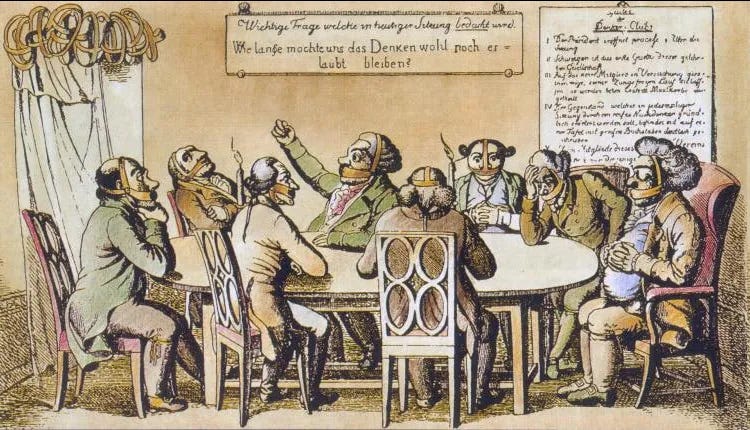 Wichtige Frage welche in heutiger Sitzung bedacht wird.
Wie lange mochte uns das Denken wohl noch er=
laubt bleiben?
Denker-Club
I Der Präsident eröffnet
Sitzung
II Schweigen ist das erste Gesetz dieser gelehr-
ten Gesellschaft
III Auf das kein Mitglied in Versuchung
möge, seiner Zunge freyen Lauf zu
so werden beim
IV Der Gegenstand welcher in jedesmaliger
Sitzung durch ein reifes Nachdenken gründ-
lich werden soll, befindet sich auf ei-
ner Tafel mit grosen Buchstaben deutlich ge-
schrieben
dieses Vereins